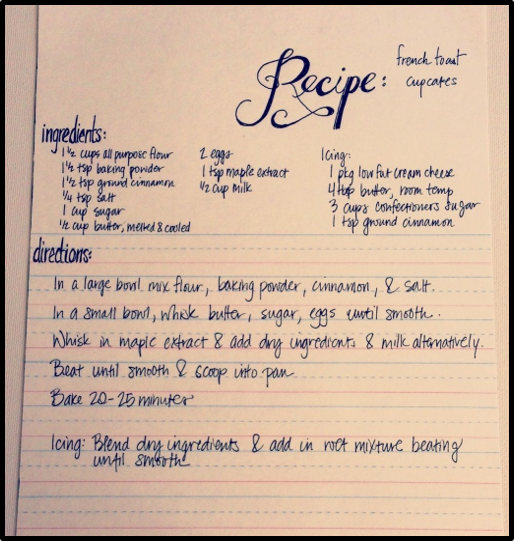 Recipe: french toast
cupcakes
ingredients:
1 ½ cups all purpose flour
1 ½ tsp baking powder
1 ½ tsp ground cinnamon
¼ tsp salt
1 cup sugar
½ cup butter, melted & cooled
2 eggs
1 tsp maple extract
½ cup milk
Icing:
1 pkg low fat cream cheese
4 tbsp butter, room temp
3 cups confectioners sugar
1 tsp ground cinnamon
directions:
In a large bowl mix flour, baking powder, cinnamon, & salt.
In a small bowl, whisk butter, sugar, eggs until smooth.
Whisk in maple extract & add dry ingredients & milk alternatively.
Beat until smooth & scoop into pan
Bake 20-25 minutes
Icing: Blend dry ingredients & add in wet mixture beating
until smooth